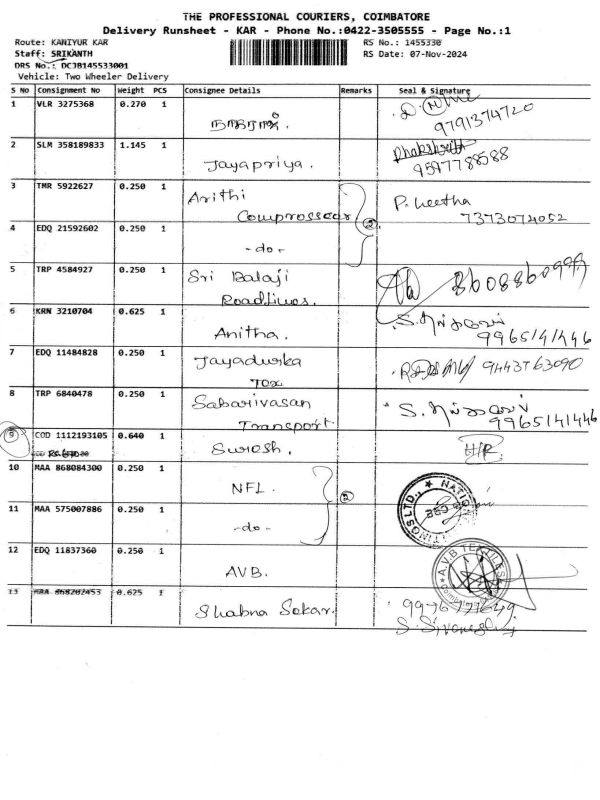 THE PROFESSIONAL COURIERS, COIMBATORE
Delivery Runsheet - KAR - Phone No.:0422-3505555 - Page No.:1
Route: KANIYUR KAR
RS No.: 1455330
Staff: SRIKANTH
RS Date: 07-Nov-2024
DRS No.: DCJB145533001
Vehicle: Two Wheeler Delivery
S No Consignment No Weight PCS Consignee Details Remarks Seal & Signature
1 VLR 3275368 0.270 1
9791374720
2 SLM 358189833 1.145 1 Jayapriya.
9597788588
3 TMR 5922627 0.250 1 Arithi P. Geetha
Comprosseor 7373074052
4 EDQ 21592602 0.250 1 -do- 2
5 TRP 4584927 0.250 1 Sri Balaji
Roadlinos.
6 KRN 3210704 0.625 1 Anitha.
9965141446
7 EDQ 11484828 0.250 1 Jayadurka 9443763090
Tox
8 TRP 6840478 0.250 1 Sabarivasan
Transport 9965141446
9 COD 1112193105 0.640 1 Surosh.
10 MAA 868084300 0.250 1 NFL.
2
11 MAA 575007886 0.250 1 -do-
12 EDQ 11837360 0.250 1 AVB.
13 MAA 868202453 0.625 1 Shabna Sekar.